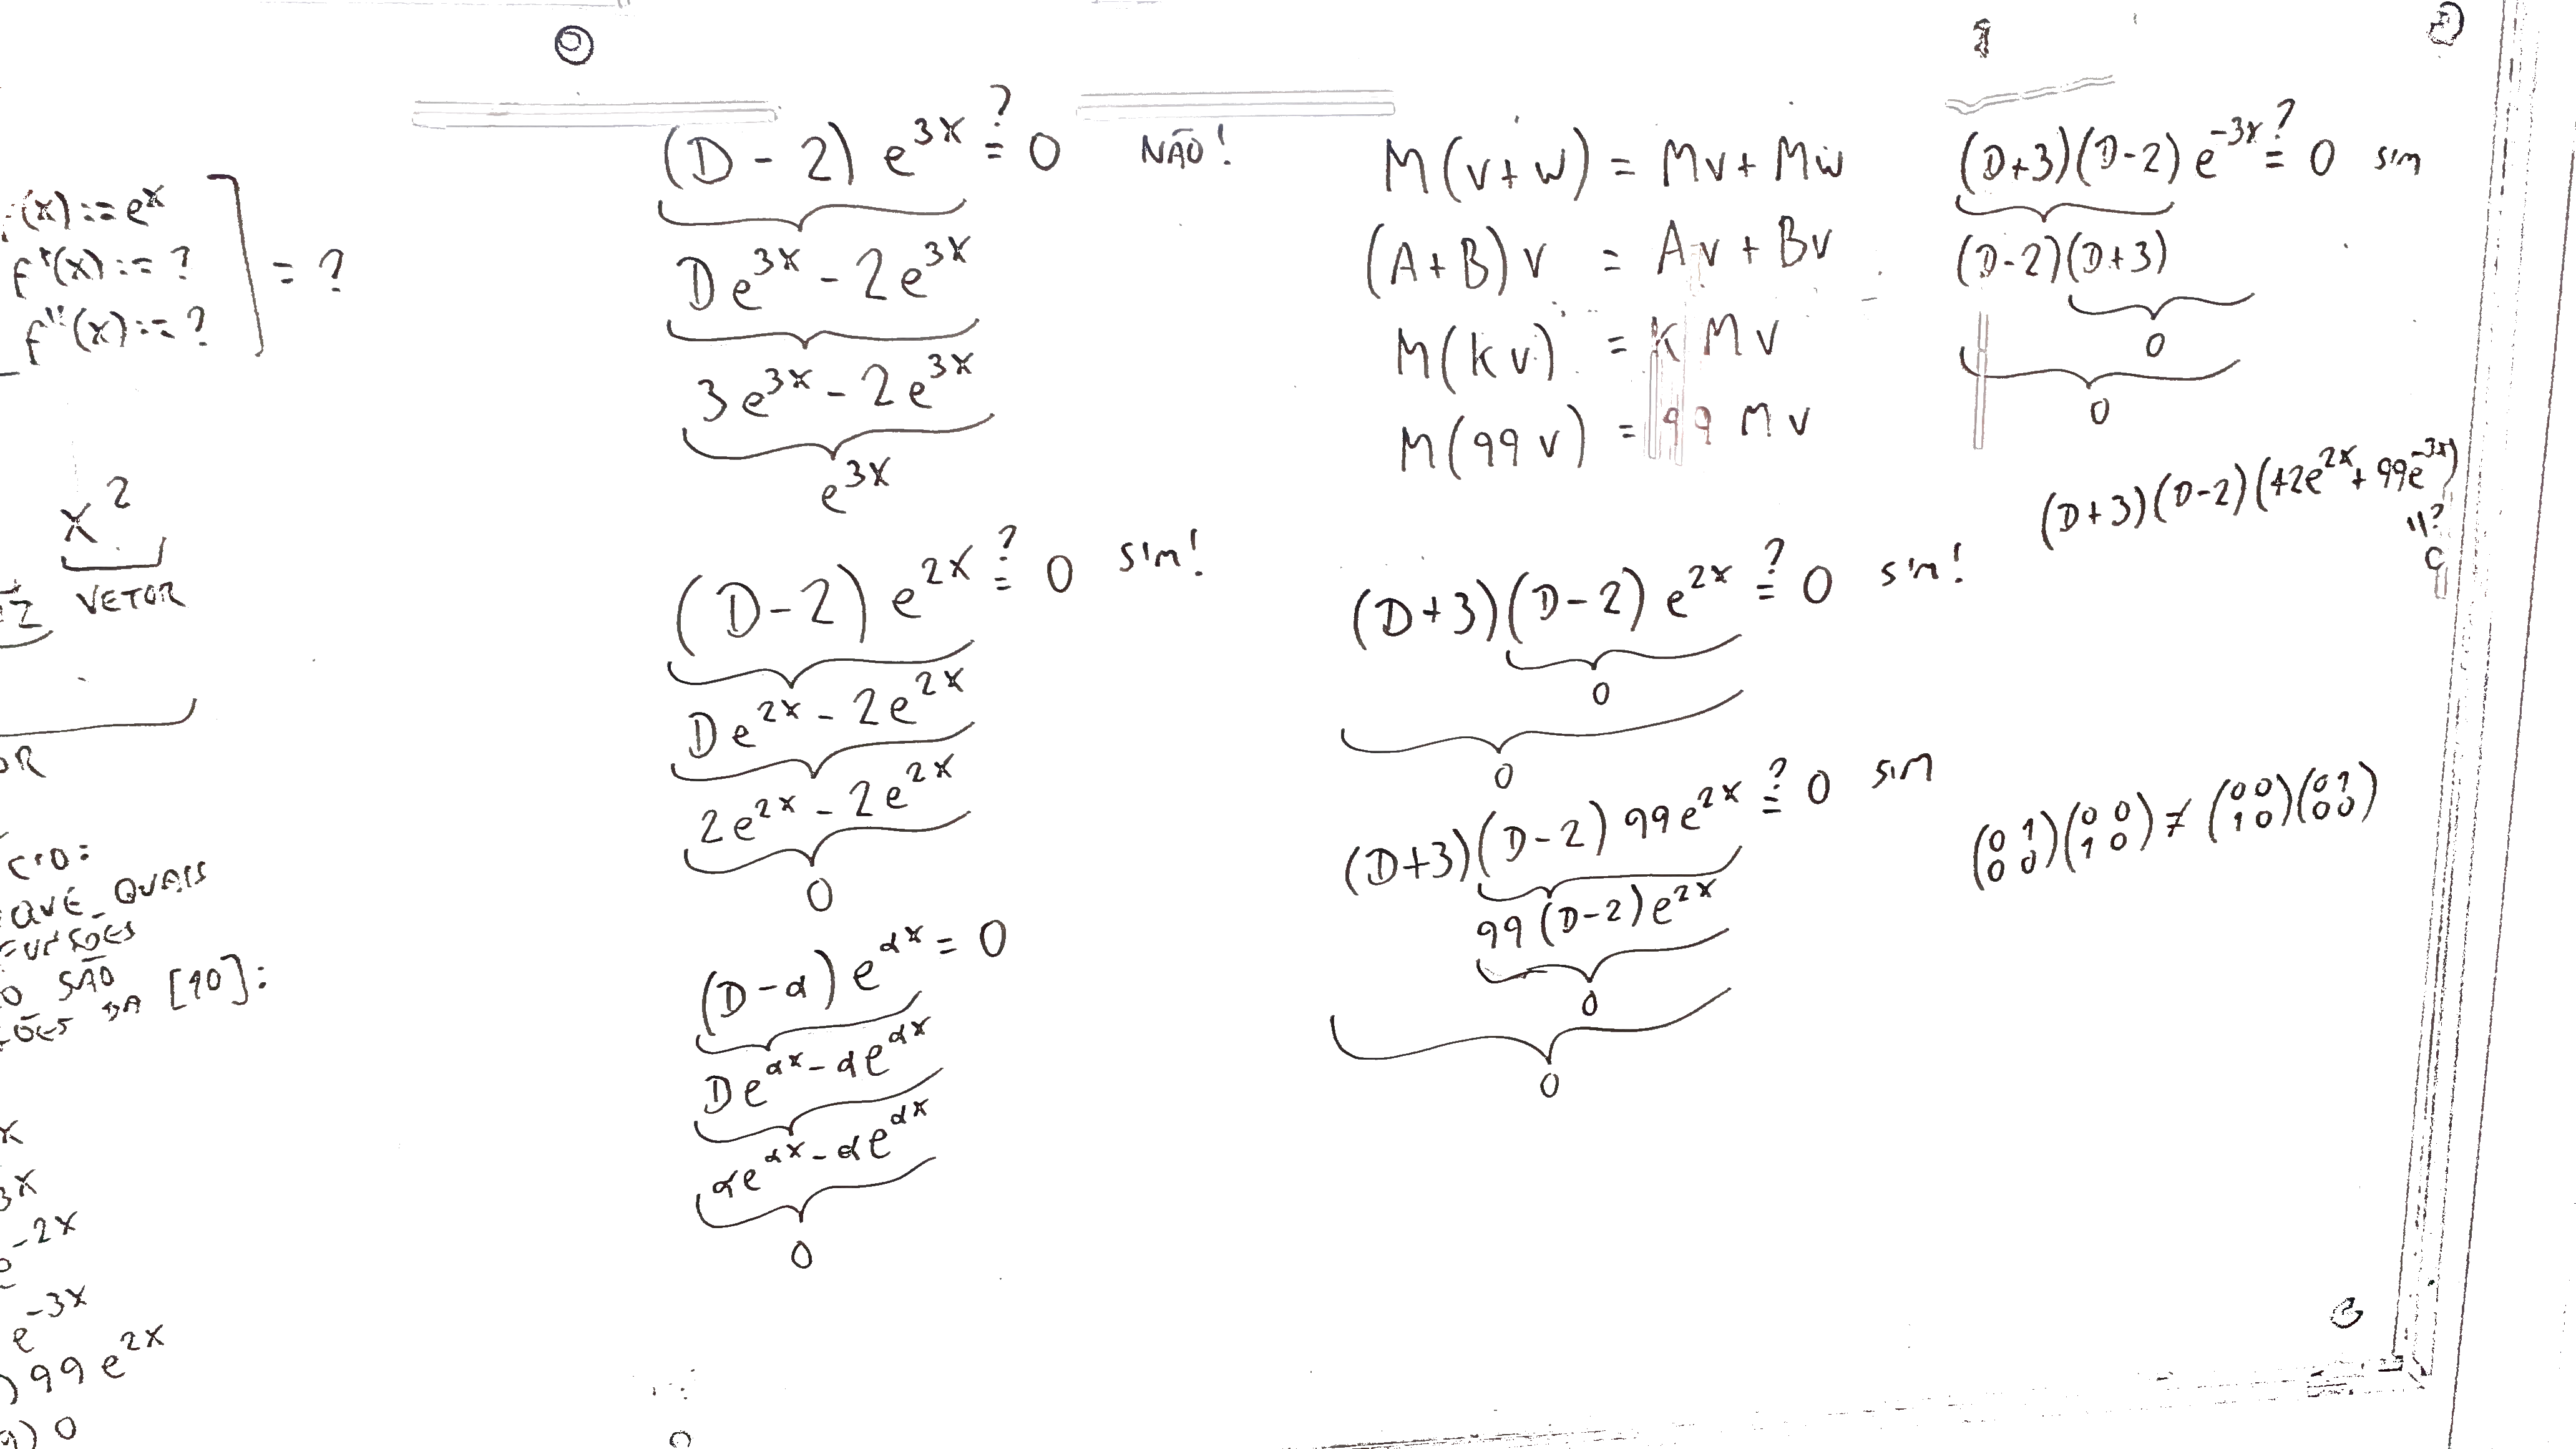 (x) := e^x
f'(x) := ?
= ?
f''(x) := ?
x^2
VETOR
OR
QUAIS
SÃO
DA [10]:
3x
-2x
e^{-3x}
99 e^{2x}
) 0
(D - 2) e^{3x} ?= 0 NÃO!
De^{3x} - 2e^{3x}
3e^{3x} - 2e^{3x}
e^{3x}
(D - 2) e^{2x} ?= 0 SIM!
De^{2x} - 2e^{2x}
2e^{2x} - 2e^{2x}
0
(D - α) e^{αx} = 0
De^{αx} - αe^{αx}
αe^{αx} - αe^{αx}
0
M(v+w) = Mv + Mw
(A+B)v = Av + Bv
M(kv) = k Mv
M(99v) = 99 Mv
(D+3)(D-2) e^{2x} ?= 0 SIM!
0
0
(D+3)(D-2) 99e^{2x} ?= 0 SIM
99(D-2)e^{2x}
0
0
(D+3)(D-2) e^{-3x} ?= 0 SIM
(D-2)(D+3)
0
0
(D+3)(D-2)(42e^{2x} + 99e^{-3x})
=?
0
(0 1 / 0 0)(0 0 / 1 0) ≠ (0 0 / 1 0)(0 1 / 0 0)